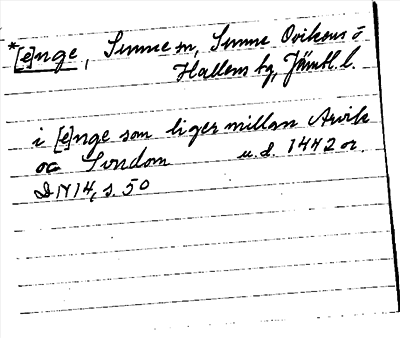 *[e]nge, Sunne sn, Sunne Ovikens o
Hallens tg, Jämtl. l.
i [e]nge som liger millan Arvik
oc Sundom u.d. 1442 or.
DN14, s. 50